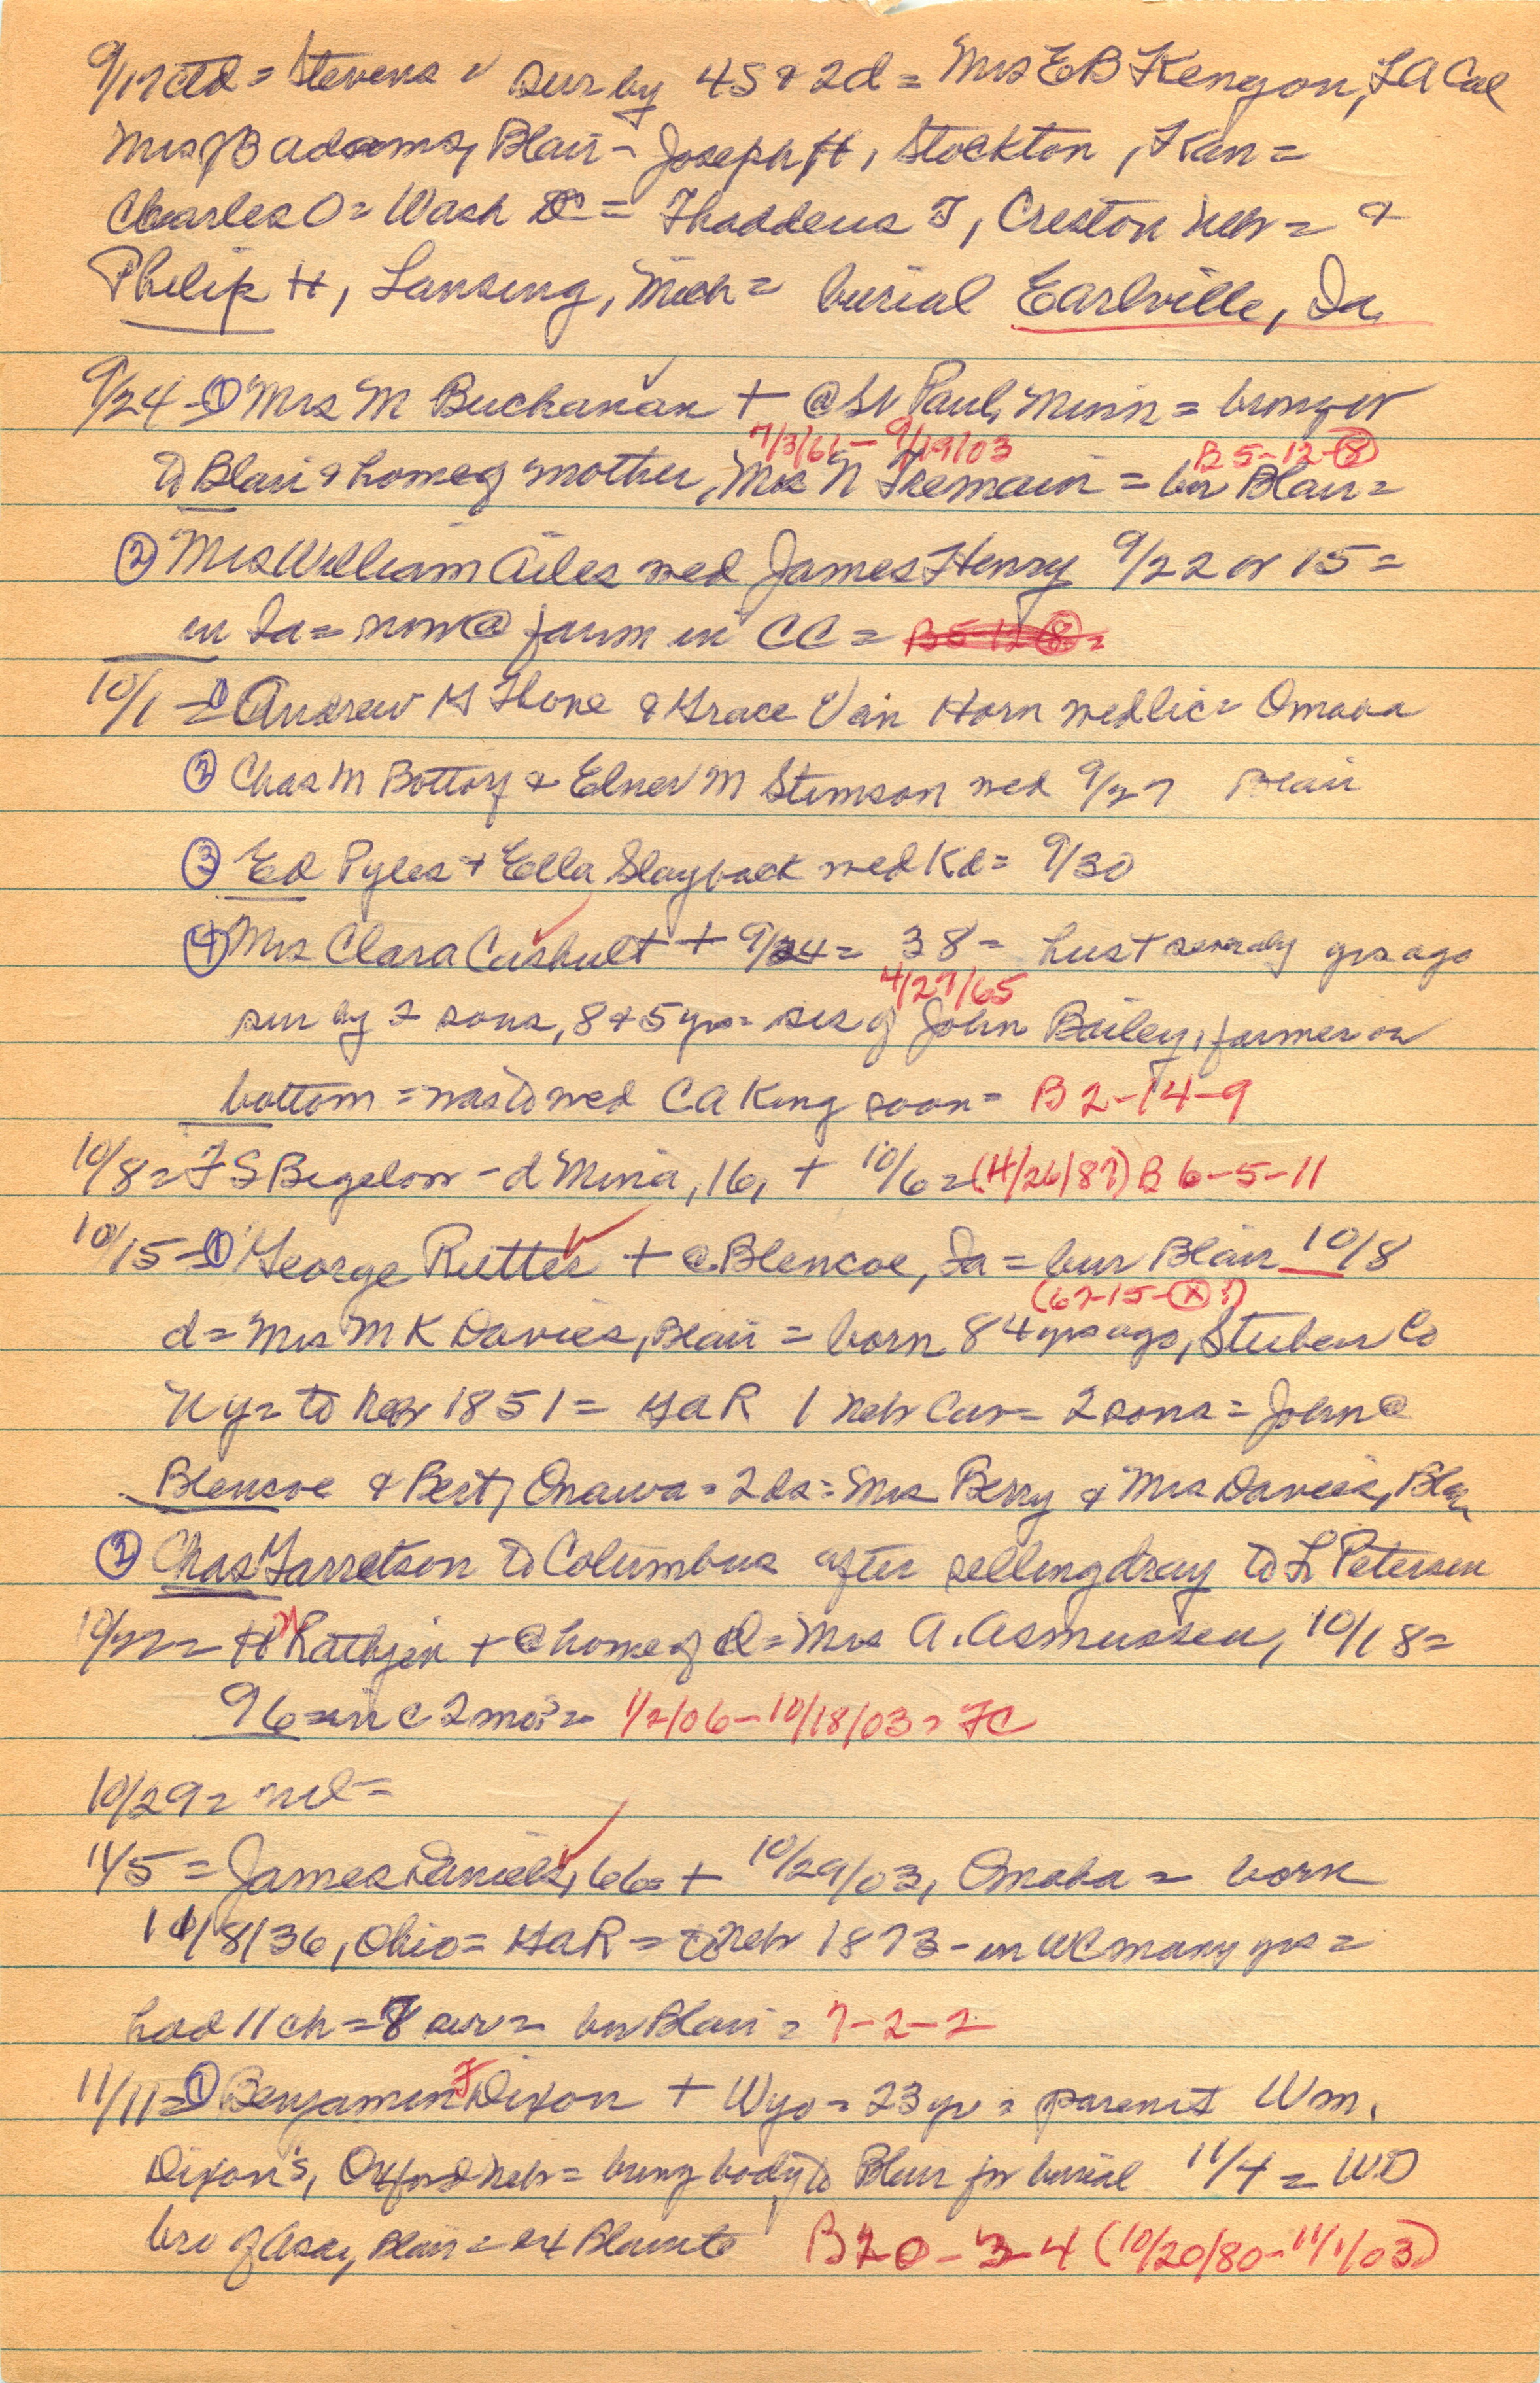 9/17 ctd = Stevens ✓ sur by 4S & 2d = Mrs EB Kenyon, LA Cal
Mrs JB Adams, Blair - Joseph H, Stockton, Kan =
Charles O = Wash DC = Thaddeus T, Creston Neb = &
Philip H, Lansing, Mich = burial Earlville, Ia
9/24 - ① Mrs M Buchanan + @ St Paul, Minn =
7/3/66 - 9/19/03 B 5-12-⑧
to Blair & home of mother, Mrs N Tremain = bur Blair =
② Mrs William Ailes wed James Henry 9/22 or 15 =
in Ia = now @ farm in CC = B 5-12-⑧ =
10/1 = ① Andrew H Thone & Grace Van Horn wed lic = Omaha
② Chas M Bottorf & Elner M Stimson wed 9/27 Blair
③ Ed Pyles + Ella Slayback wed Kd = 9/30
④ Mrs Clara Cushult + 9/24 = 38 = hus + yrs ago
4/27/65
sur by 2 sons, 8 & 5 yrs = sis of John Bailey, farmer on
bottom = was to wed CA King soon = B 2-14-9
10/8 = FS Bigelow - d Mina, 16, + 10/6 = (4/26/87) B 6-5-11
10/15 - ① George Rutter + @ Blencoe, Ia = bur Blair 10/8
(62-15-Ⓧ?)
d = Mrs MK Davies, Blair = born 84 yrs ago, Steuben Co
NY = to Neb 1851 = GAR 1 Neb Cav = 2 sons = John @
Blencoe & Bert, Onawa = 2 ds = Mrs Berry & Mrs Davies, Blair
② Chas Garretson to Columbus after selling dray to L Petersen
10/22 = H Rathjen + @ home of d = Mrs A. Asmussen, 10/18 =
96 = in c 2 mos = 1/2/06 - 10/18/03 = FC
10/29 = nil =
11/5 = James Daniels, 66 = + 10/29/03, Omaha = born
11/8/36, Ohio = GAR = to Neb 1873 - in WC many yrs =
had 11 ch = 8 sur = bur Blair = 7-2-2
11/11 = ① Benjamin F Dixon + Wyo = 23 yr = parents Wm.
Dixon's, Oxford Neb = bring body to Blair for burial 11/4 = WD
bro of Asa, Blair = ex Blairite B 20-3-4 (10/20/80 - 11/1/03)